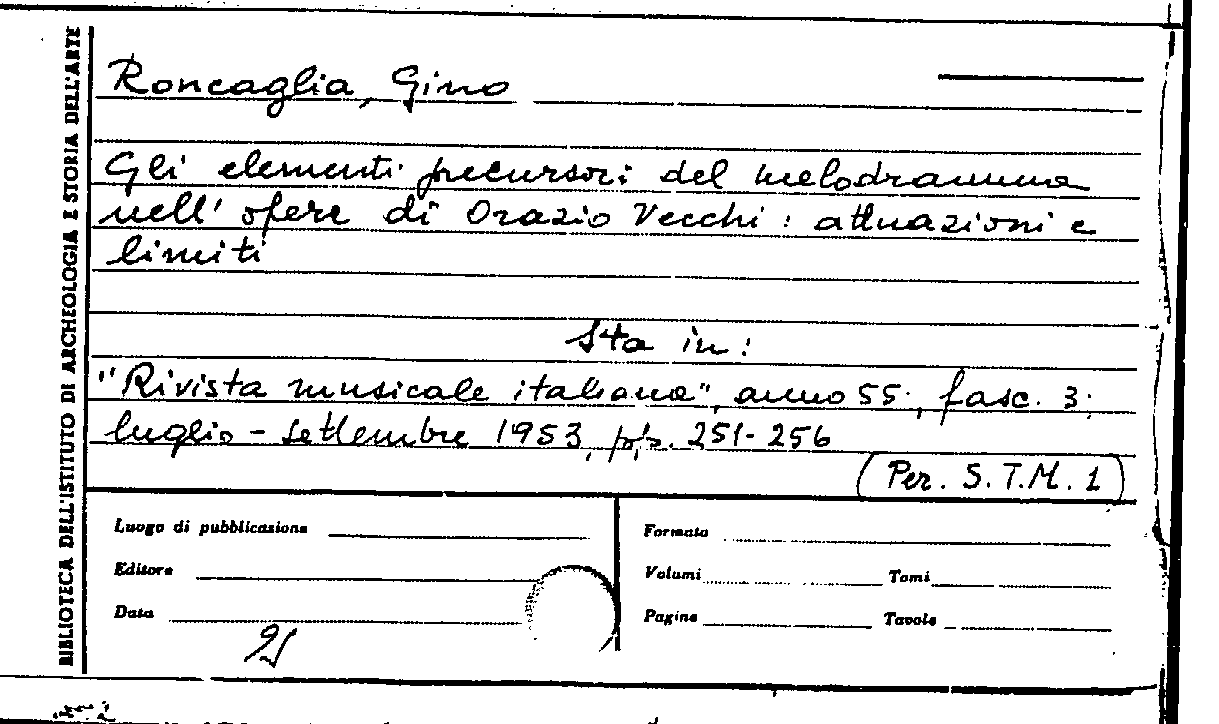 BIBLIOTECA DELL'ISTITUTO DI ARCHEOLOGIA E STORIA DELL'ARTE
Roncaglia, Gino
Gli elementi precursori del melodramma
nell' opere di Orazio Vecchi : attuazioni e
limiti
Sta in:
"Rivista musicale italiana", anno 55., fasc. 3.
luglio - settembre 1953, pp. 251-256
(Per. S.T.M. 1)
Luogo di pubblicazione
Editore
Data
Formato
Volumi Tomi
Pagine Tavole